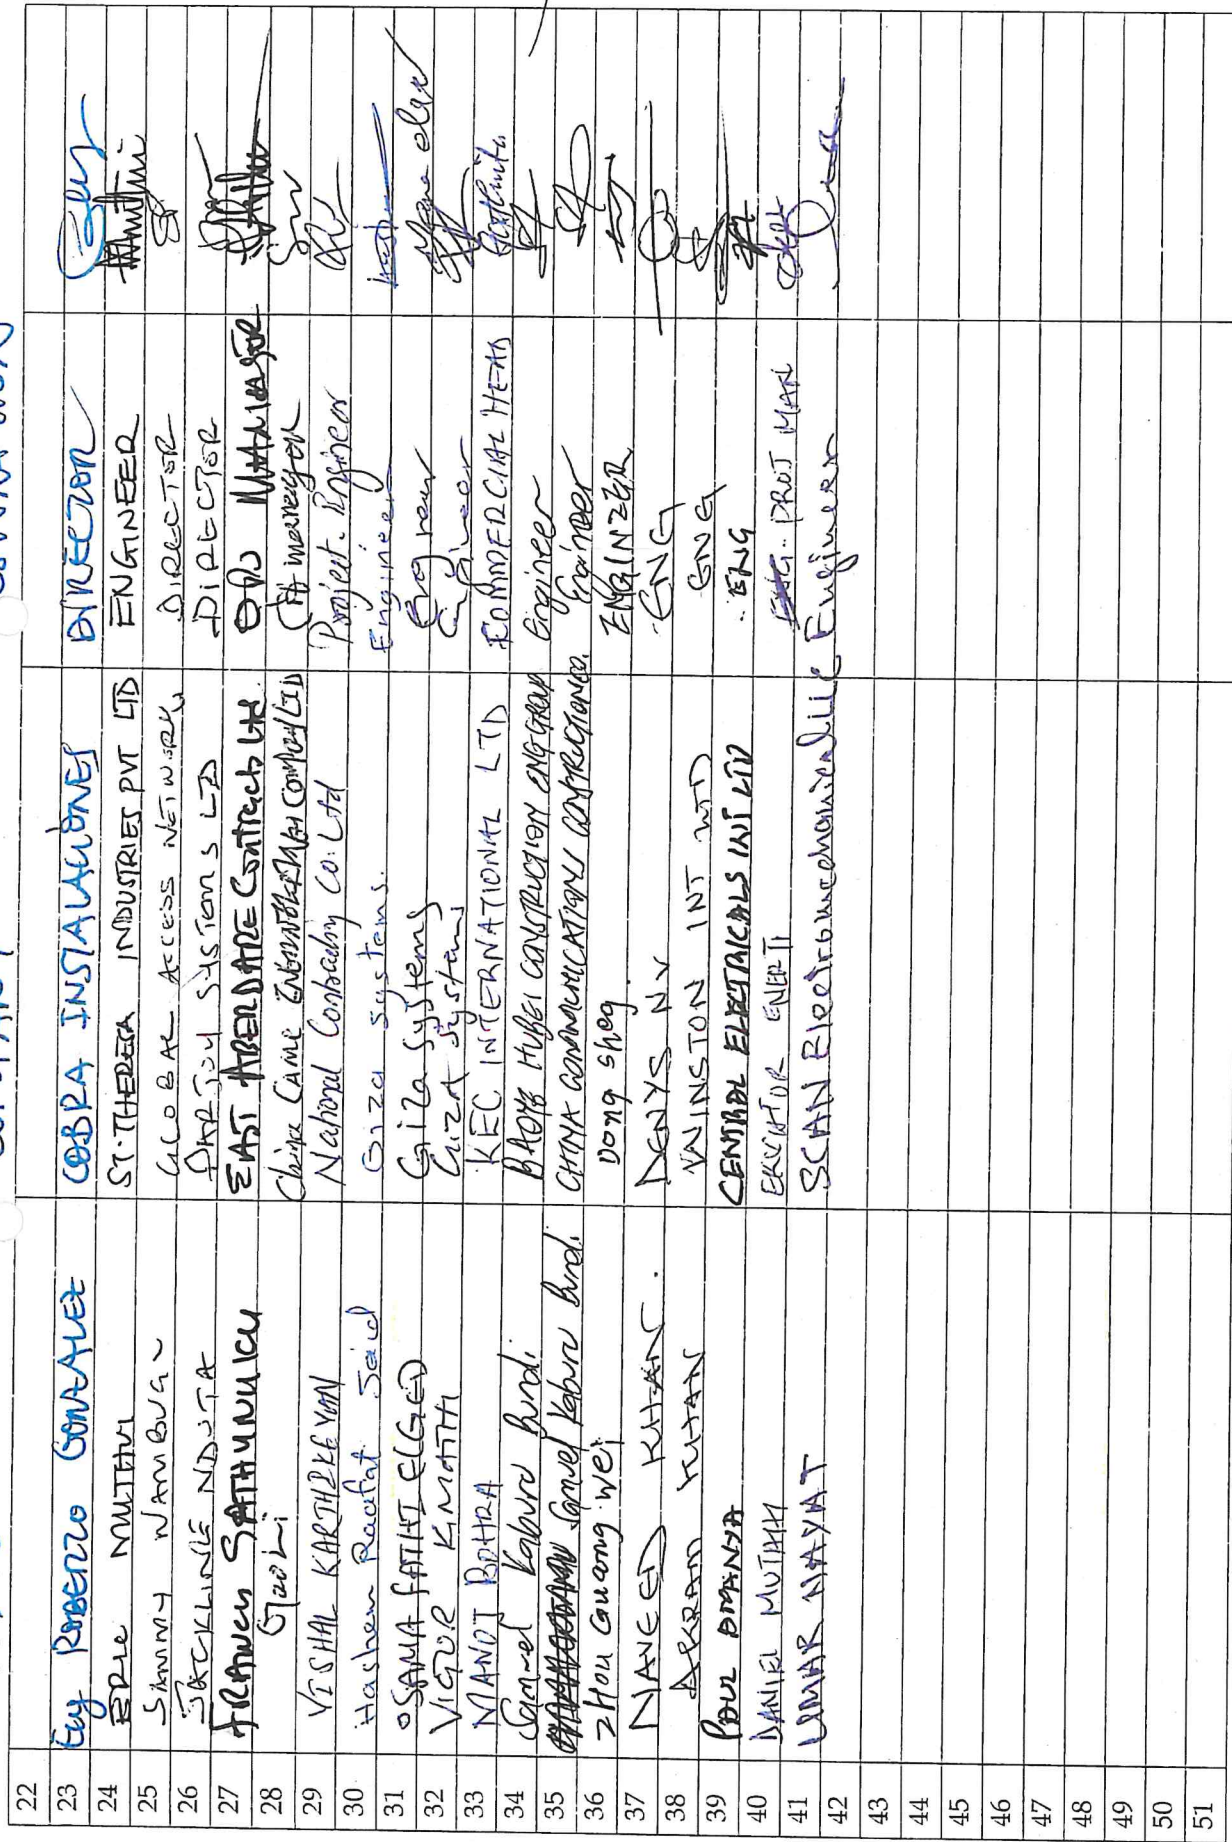 22
23 Eng ROBERTO GONZALEZ COBRA INSTALACIONES DIRECTOR
24 ERIC MUTHUI ST. THERESA INDUSTRIES PVT LTD ENGINEER
25 SAMMY WAMBUGU GLOBAL ACCESS NETWORK DIRECTOR
26 JACKLINE NDUTA PARJOY SYSTEMS LTD DIRECTOR
27 FRANCIS GATHUNUKU EAST ABERDARE Contracts Ltd. MANAGER
28 Gao Li China CAMC ENGINEERING Company LTD manager
29 VISHAL KARTHIKEYAN National Contracting Co. Ltd Project. Engineer
30 Hashem Raafat Said Giza systems. Engineer
31 OSAMA FATHI ELGED Giza Systems Engineer
32 VICTOR KIMATHI GIZA Systems Engineer
33 MANOJ BOHRA KEC INTERNATIONAL LTD COMMERCIAL HEAD
34 Samuel Kaburu Bundi. BAOYE HUBEI CONSTRUCTION ENG GROUP Engineer
35 Samuel Kaburu Bundi. CHINA COMMUNICATIONS CONSTRUCTION CO. Engineer
36 Zhou Guang wei Dong sheg. ENGINZER
37 NAVEED KHAN. DENYS NV ENG
38 AKRAM KHAN VINSTON INT LTD ENG
39 PAUL CENTRAL ELECTRICALS INT LTD ENG
40 DANIEL MUTAHI ENERTI PROJ MAN
41 UMAR HAYAT SCAN Electromechanical Engineer
42
43
44
45
46
47
48
49
50
51